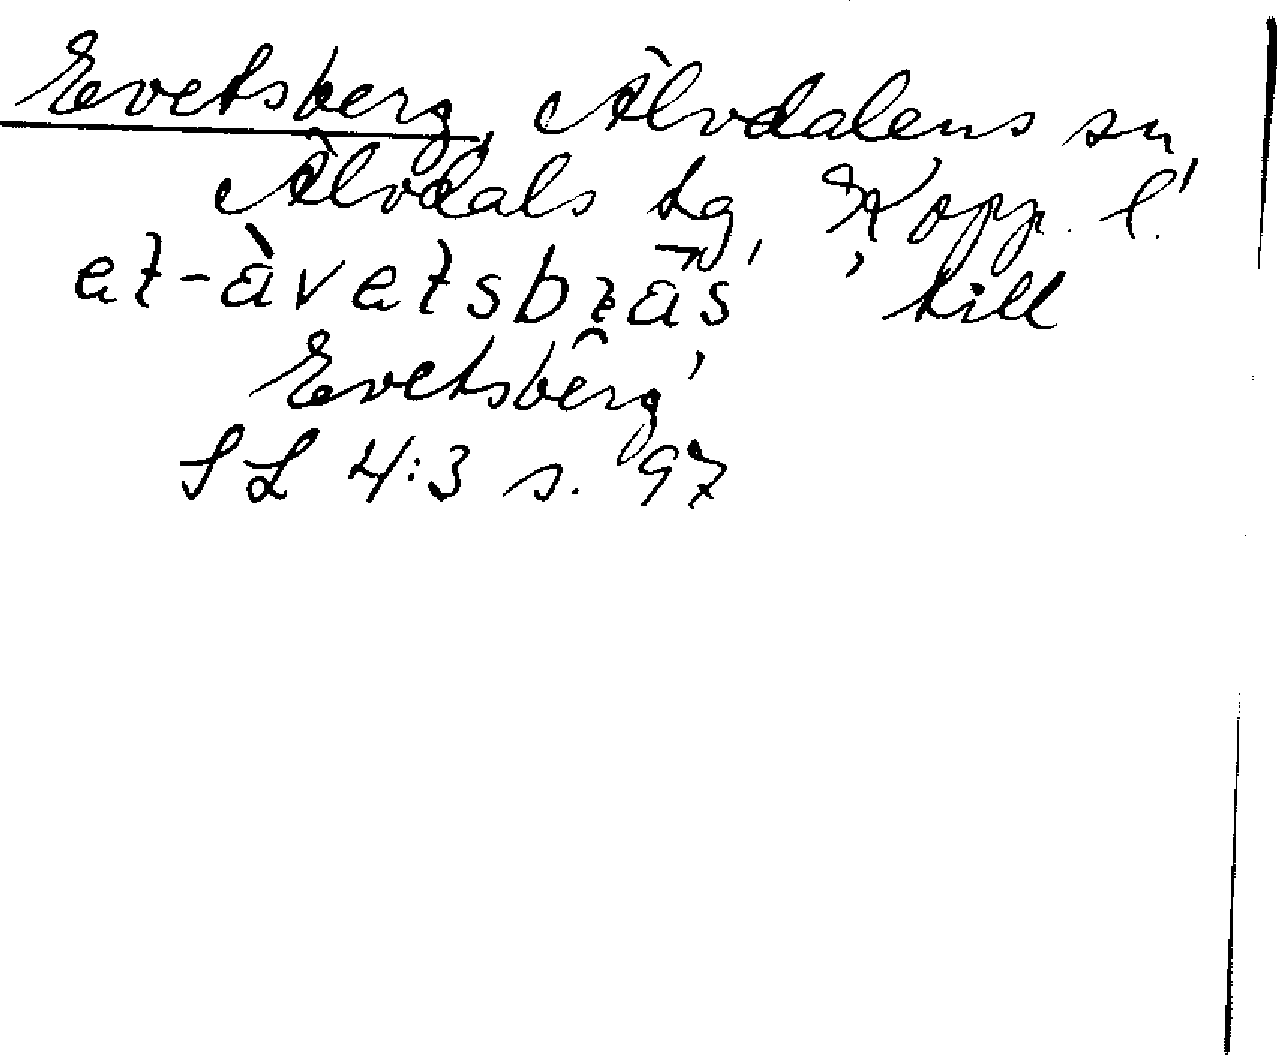 Evetsberg, Älvdalens sn,
Älvdals tg, Kopp. l.
et-àvetsbrā̀s 'till
Evetsberg'
SL 4:3 s. 97